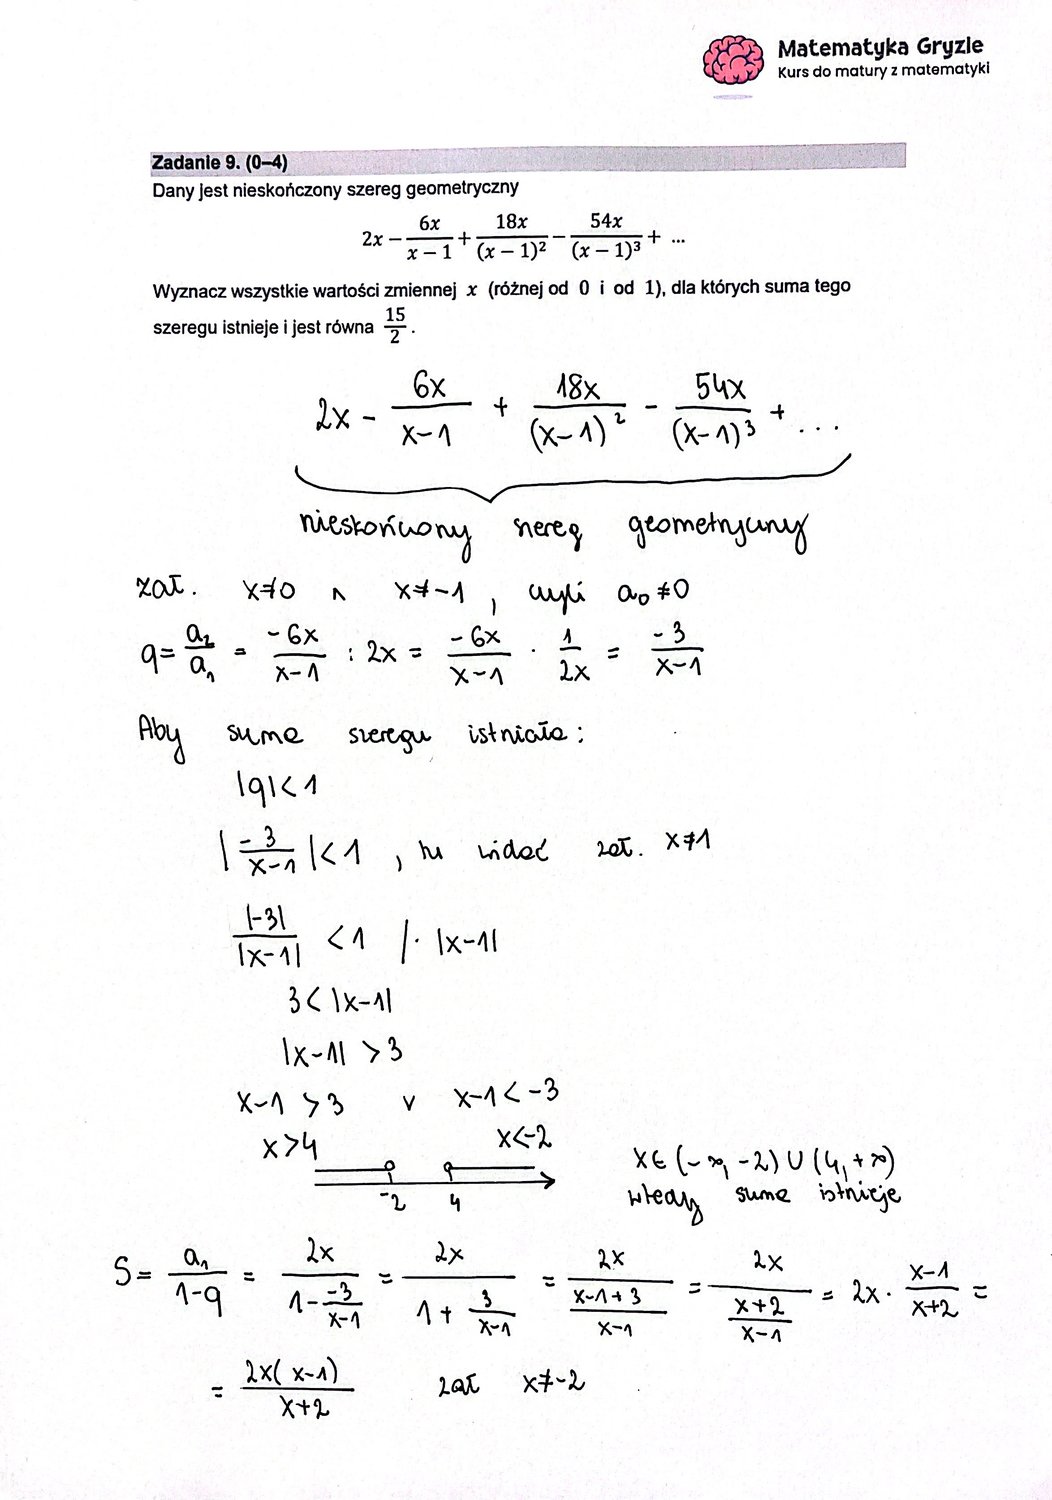 Matematyka Gryzie
Kurs do matury z matematyki
Zadanie 9. (0–4)
Dany jest nieskończony szereg geometryczny
2x − 6x/(x − 1) + 18x/(x − 1)² − 54x/(x − 1)³ + ...
Wyznacz wszystkie wartości zmiennej x (różnej od 0 i od 1), dla których suma tego
szeregu istnieje i jest równa 15/2.
2x - 6x/(x-1) + 18x/(x-1)² - 54x/(x-1)³ + ...
nieskończony szereg geometryczny
zał. x≠0 ∧ x≠-1, czyli a₀≠0
q = a₂/a₁ = -6x/(x-1) : 2x = -6x/(x-1) · 1/2x = -3/(x-1)
Aby suma szeregu istniała:
|q|<1
|-3/(x-1)|<1, tu widać zał. x≠1
|-3|/|x-1| <1 /· |x-1|
3< |x-1|
|x-1| >3
x-1 >3 v x-1<-3
x>4 x<-2
-2 4
x∈(-∞, -2)∪(4,+∞)
wtedy suma istnieje
S= a₁/(1-q) = 2x/(1-(-3)/(x-1)) = 2x/(1+3/(x-1)) = 2x/((x-1+3)/(x-1)) = 2x/((x+2)/(x-1)) = 2x· (x-1)/(x+2) =
= 2x(x-1)/(x+2) zał x≠-2